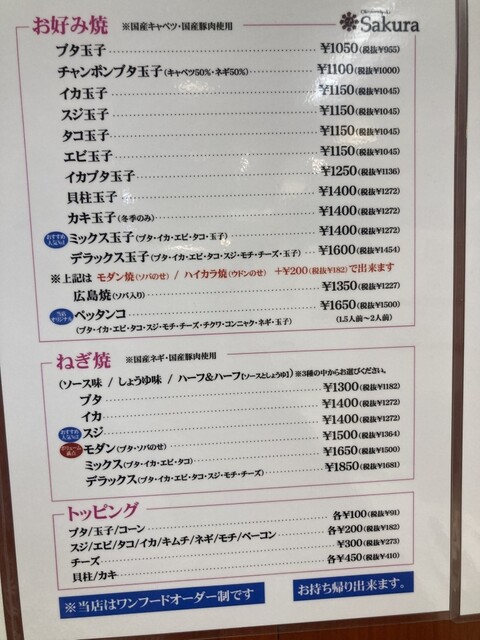 お好み焼 ※国産キャベツ・国産豚肉使用
Sakura
ブタ玉子 ¥1050(税抜¥955)
チャンポンブタ玉子(キャベツ50%・ネギ50%) ¥1100(税抜¥1000)
イカ玉子 ¥1150(税抜¥1045)
スジ玉子 ¥1150(税抜¥1045)
タコ玉子 ¥1150(税抜¥1045)
エビ玉子 ¥1150(税抜¥1045)
イカブタ玉子 ¥1250(税抜¥1136)
貝柱玉子 ¥1400(税抜¥1272)
カキ玉子(冬季のみ) ¥1400(税抜¥1272)
おすすめ人気No.1 ミックス玉子(ブタ・イカ・エビ・タコ・玉子) ¥1400(税抜¥1272)
デラックス玉子(ブタ・イカ・エビ・タコ・スジ・モチ・チーズ・玉子) ¥1600(税抜¥1454)
※上記は モダン焼(ソバのせ) / ハイカラ焼(ウドンのせ) +¥200(税抜¥182)で出来ます
広島焼(ソバ入り) ¥1350(税抜¥1227)
当店オリジナル ペッタンコ ¥1650(税抜¥1500)
(ブタ・イカ・エビ・タコ・スジ・モチ・チーズ・チクワ・コンニャク・ネギ・玉子) (1.5人前〜2人前)
ねぎ焼 ※国産ネギ・国産豚肉使用
(ソース味 / しょうゆ味 / ハーフ&ハーフ【ソースとしょうゆ】)※3種の中からお選びください。
ブタ ¥1300(税抜¥1182)
イカ ¥1400(税抜¥1272)
おすすめ人気No.2 スジ ¥1400(税抜¥1272)
ボリューム満点 モダン(ブタ・ソバのせ) ¥1500(税抜¥1364)
ミックス(ブタ・イカ・エビ・タコ) ¥1650(税抜¥1500)
デラックス(ブタ・イカ・エビ・タコ・スジ・モチ・チーズ) ¥1850(税抜¥1681)
トッピング
ブタ/玉子/コーン 各¥100(税抜¥91)
スジ/エビ/タコ/イカ/キムチ/ネギ/モチ/ベーコン 各¥200(税抜¥182)
チーズ ¥300(税抜¥273)
貝柱/カキ 各¥450(税抜¥410)
※当店はワンフードオーダー制です
お持ち帰り出来ます。